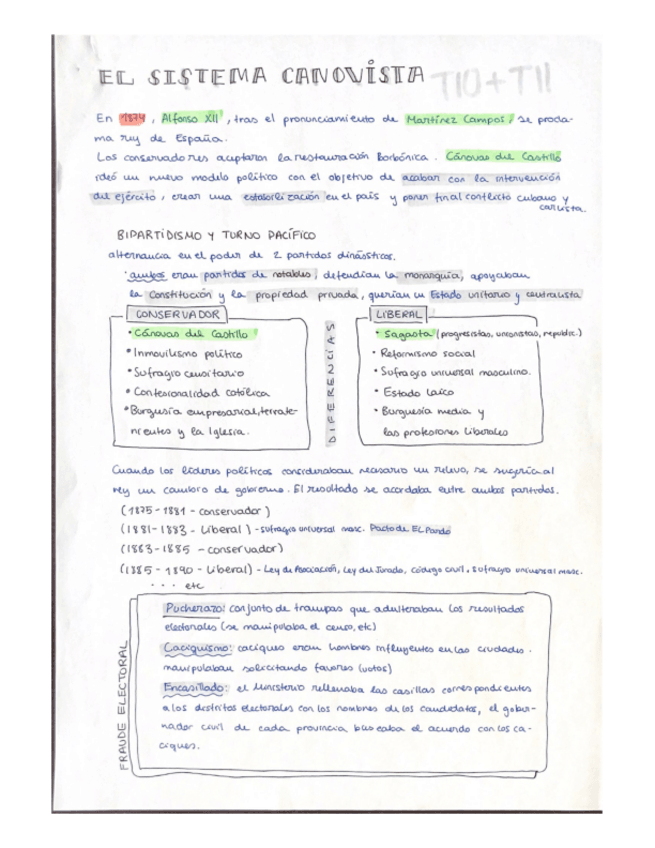 EL SISTEMA CANOVISTA T10+T11
En 1874, Alfonso XII, tras el pronunciamiento de Martínez Campos, se procla-
ma rey de España.
Los conservadores aceptaron la restauración Borbónica. Cánovas del Castillo
ideó un nuevo modelo político con el objetivo de acabar con la intervención
del ejército, crear una estabilización en el país y poner fin al conflicto cubano y
carlista.
BIPARTIDISMO Y TURNO PACÍFICO
alternancia en el poder de 2 partidos dinásticos.
· ambos eran partidos de notables, defendían la monarquía, apoyaban
la Constitución y la propiedad privada, querían un Estado unitario y centralista
CONSERVADOR
• Cánovas del Castillo
• Inmovilismo político
• Sufragio censitario
• Confesionalidad católica
• Burguesía empresarial, terrate-
nientes y la Iglesia.
DIFERENCIAS
LIBERAL
• Sagasta (progresistas, unionistas, republic.)
• Reformismo social
• Sufragio universal masculino.
• Estado laico
• Burguesía media y
las profesiones liberales
Cuando los líderes políticos consideraban necesario un relevo, se sugería al
rey un cambio de gobierno. El resultado se acordaba entre ambos partidos.
(1875-1881 - conservador)
(1881-1883 - Liberal) - sufragio universal masc. Pacto de El Pardo
(1883-1885 - conservador)
(1885-1890 - Liberal) - Ley de Asociación, Ley del Jurado, Código civil, Sufragio universal masc.
... etc
FRAUDE ELECTORAL
Pucherazo: conjunto de trampas que adulteraban los resultados
electorales (se manipulaba el censo, etc)
Caciquismo: caciques eran hombres influyentes en las ciudades.
manipulaban solicitando favores (votos)
Encasillado: el Ministerio rellenaba las casillas correspondientes
a los distritos electorales con los nombres de los candidatos, el gober-
nador civil de cada provincia buscaba el acuerdo con los ca-
ciques.